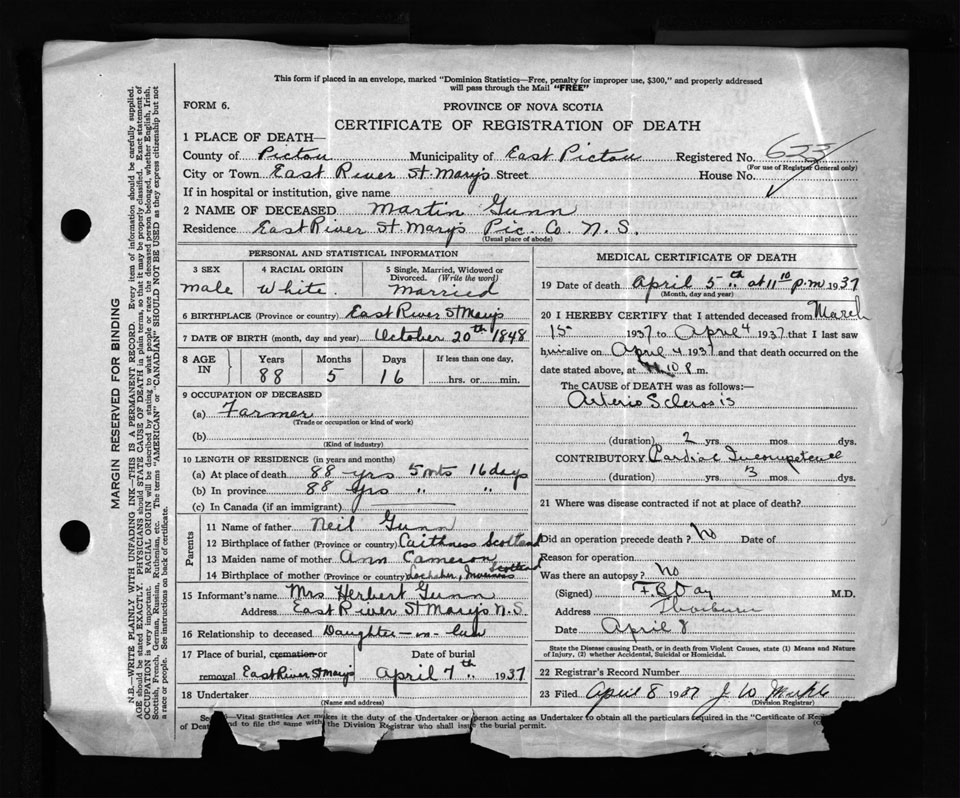 This form if placed in an envelope, marked "Dominion Statistics—Free, penalty for improper use, $300," and properly addressed
will pass through the Mail "FREE"
FORM 6.
PROVINCE OF NOVA SCOTIA
CERTIFICATE OF REGISTRATION OF DEATH
1 PLACE OF DEATH—
County of Pictou Municipality of East Pictou Registered No. 633
(For use of Registrar General only)
City or Town East River St. Mary's Street House No.
If in hospital or institution, give name
2 NAME OF DECEASED Martin Gunn
Residence East River St Mary's Pic. Co. N. S.
(Usual place of abode)
PERSONAL AND STATISTICAL INFORMATION
3 SEX 4 RACIAL ORIGIN 5 Single, Married, Widowed or
Divorced. (Write the word)
male White. Married
6 BIRTHPLACE (Province or country) East River St Mary's
7 DATE OF BIRTH (month, day and year) October 20th 1848
8 AGE IN Years Months Days If less than one day,
88 5 16 hrs. or min.
9 OCCUPATION OF DECEASED
(a) Farmer
(Trade or occupation or kind of work)
(b)
(Kind of industry)
10 LENGTH OF RESIDENCE (in years and months)
(a) At place of death 88 yrs 5 mts 16 days
(b) In province 88 yrs " "
(c) In Canada (if an immigrant)
Parents
11 Name of father Neil Gunn
12 Birthplace of father (Province or country) Caithness Scotland
13 Maiden name of mother Ann Cameron
14 Birthplace of mother (Province or country) Lochaber, Inverness Scotland
15 Informant's name Mrs Herbert Gunn
Address East River St Mary's N.S.
16 Relationship to deceased Daughter-in-law
17 Place of burial, cremation or Date of burial
removal East River St Mary's April 7th 1937
18 Undertaker
(Name and address)
MEDICAL CERTIFICATE OF DEATH
19 Date of Death April 5th at 11 10 p.m 1937
(Month, day and year)
20 I HEREBY CERTIFY that I attended deceased from March
15 1937 to April 4 1937 that I last saw
him alive on April 4 1937 and that death occurred on the
date stated above, at 11 10 P. m.
The CAUSE OF DEATH was as follows:—
Arterio Sclerosis
(duration) 2 yrs. mos. dys.
CONTRIBUTORY Cardiac Incompetence
(duration) 3 yrs. mos. dys.
21 Where was disease contracted if not at place of death?
Did an operation precede death? No Date of
Reason for operation
Was there an autopsy? No
(Signed) F. B. Day M.D.
Address Thorburn
Date April 8
State the Disease causing Death, or in death from Violent Causes, state (1) Means and Nature
of Injury, (2) whether Accidental, Suicidal or Homicidal.
22 Registrar's Record Number
23 Filed April 8 1937 J W
(Division Registrar)
Vital Statistics Act makes it the duty of the Undertaker or person acting as Undertaker to obtain all the particulars required in the "Certificate of
of Death and to file the same with the Division Registrar who shall issue the burial permit.
MARGIN RESERVED FOR BINDING
N.B.—WRITE PLAINLY WITH UNFADING INK—THIS IS A PERMANENT RECORD. Every item of information should be carefully supplied.
AGE should be stated EXACTLY. PHYSICIANS should STATE CAUSE OF DEATH in plain terms, so that it may be properly classified. Exact statement of
OCCUPATION is very important. RACIAL ORIGIN will be described by stating to what people or race the deceased person belonged, whether English, Irish,
Scottish, French, German, Russian, Ruthenian, etc. The terms "AMERICAN" or "CANADIAN" SHOULD NOT BE USED as they express citizenship but not
a race or people. See instructions on back of certificate.